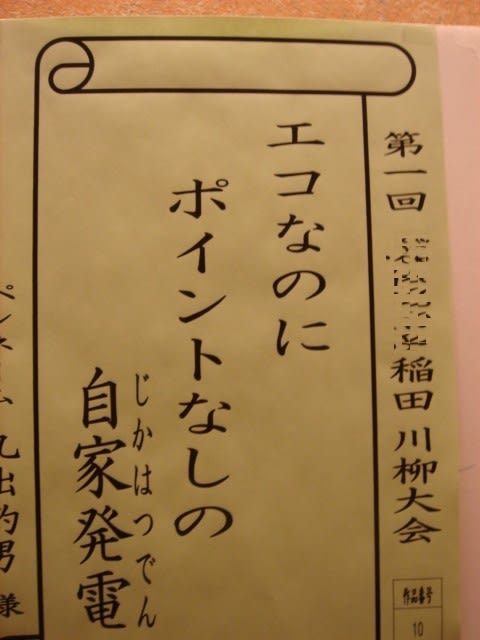 第一回
稲田 川柳大会
作品番号
10
エコなのに
ポイントなしの
自家発電
じかはつでん
ペンネーム 丸出灼男 様